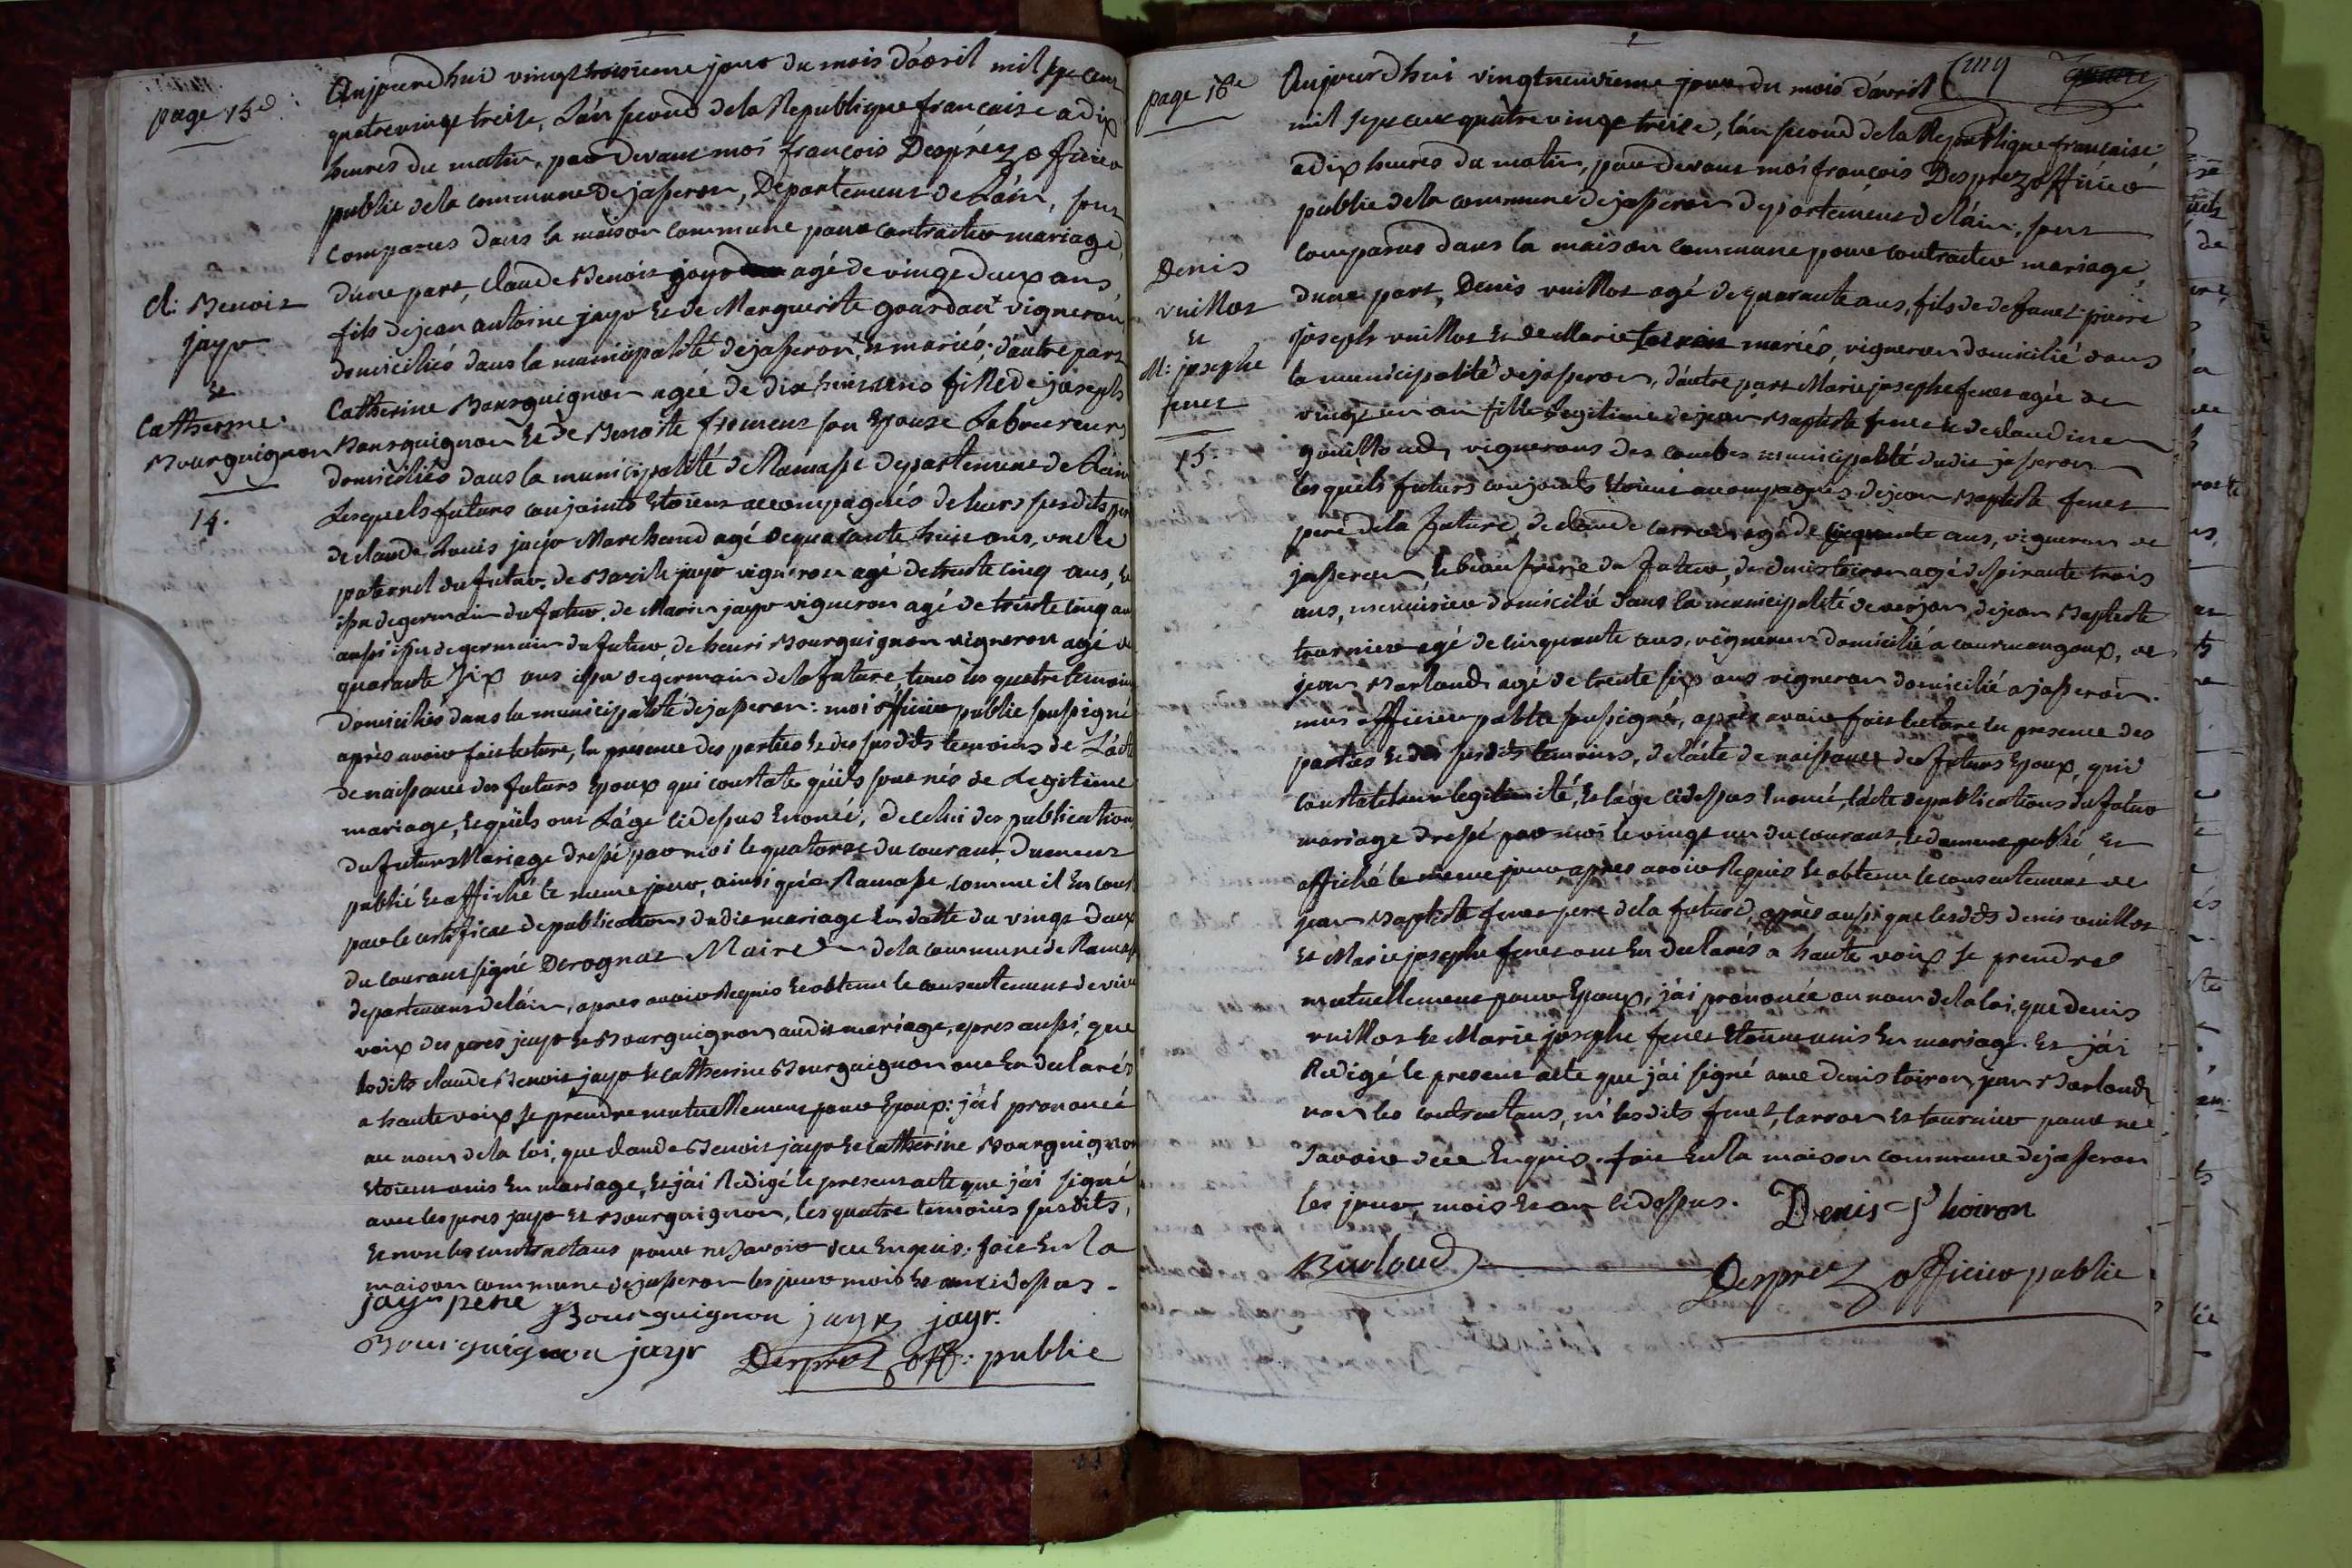 page 15e.
Aujourdhui vingt troisieme jour du mois d'avril mil sept cent
quatrevingt treise, L'an second de la Republique francaise a dix
heures du matin, par devant moi françois Desprez officier
public de la commune de jasseron, Departement de L'ain, sont
comparus dans la maison commune pour contracter mariage,
d'une part, claude Benoit jayr agé de vingt deux ans
fils de jean antoine jayr et de Marguerite gourdant vigneron
domiciliés dans la municipalité de jasseron, et mariés; d'autre part
Catherine Bourguignon agée de dix huit ans fille de joseph
Bourguignon et de Benoite froment son Epouse Laboureurs
domiciliés dans la municipalité de Ramasse departement de L'ain
Lesquels futurs conjoints Etoient accompagnés de leurs susdits
de claude Louis jayr Marchand agé de quarante huit ans, oncle
paternel du futur, de Bazile jayr vigneron agé de trente cinq ans, et
issu de germain du futur, de Marin jayr vigneron agé de trente cinq ans
aussi issu de germain du futur, de henri Bourguignon vigneron agé de
quarante six ans issu de germain de la future tous les quatre temoins
domiciliés dans la municipalité de jasseron: moi officier public soussigné
après avoir fait lecture, En presence des parties et des susdits temoins de L'acte
de naissance des futurs Epoux qui constate qu'ils sont nés de Legitime
mariage, et qu'ils ont L'âge cidessus Enoncé, de celui des publications
du futur Mariage dressé par moi le quatorze du courant, dument
publié et affiché le meme jour, ainsi qu'a Ramasse, comme il En conste
par le certificat de publications dudit mariage En datte du vingt deux
du courant signé Derognat Maire de la commune de Ramasse
departement de l'ain, apres avoir Requis et obtenu le consentement de vive
voix des peres jayr et Bourguignon audit mariage, apres aussi, que
lesdits claude Benoit jayr et catherine Bourguignon ont En declarés
a haute voix se prendre mutuellement pour Epoux: j'ai prononcé
au nom de la loi, que claude Benoit jayr et catherine Bourguignon
Etoient unis En mariage, et j'ai Redigé le present acte que j'ai signé
avec les peres jayr et Bourguignon, les quatre temoins susdits,
et non les contractans pour ne savoir de ce Enquis. fait En la
maison commune de jasseron les jour mois et an cidessus.
jayr pere Bourguignon jayr jayr.
Bourguignon jayr Desprez off: public
Cl: Benoit
jayr
et
Catherine
Bourguignon
14.
page 16e
Aujourdhui vingtneuvieme jour du mois d'avril
mil sept cent quatre vingt treise, l'an second de la Republique française
a dix heures du matin, par devant moi françois Desprez officier
public de la commune de jasseron departement de l'ain, sont
comparus dans la maison commune pour contracter mariage,
d'une part, Denis vuillot agé de quarante ans, fils de defunt pierre
joseph vuillot et de Marie toiron mariés, vigneron domicilié dans
la municipalité de jasseron, d'autre part Marie josephe feuet agée de
vingt un an fille Legitime de jean Baptiste feuet et de claudine
gouilloud, vignerons des combes municipalité dudit jasseron
lesquels futurs conjoints Etoient accompagnés de jean Baptiste feuet
pere de la future, de claude carron agé de cinquante ans, vigneron de
jasseron, le beau frere du futur, de denis toiron agé de soixante trois
ans, menuisier domicilié dans la municipalité de verjon, de jean Baptiste
tournier agé de cinquante ans, vigneron domicilié a courmangoux, de
jean Barloud agé de trente six ans vigneron domicilié a jasseron.
moi officier public soussigné, après avoir fait lecture En presence des
parties et des susdits temoins, de l'acte de naissance des futurs Epoux, qui
constate leur legitimité, et l'age cidessus Enoncé, l'acte de publications du futur
mariage dressé par moi le vingt un du courant, et dument publié, et
affiché le meme jour apres avoir Requis et obtenu le consentement de
jean Baptiste feuet pere de la future, après aussi que lesdits denis vuillot
et Marie josephe feuet ont En declarés a haute voix se prendre
mutuellement pour Epoux, j'ai prononcée au nom de la loi, que denis
vuillot et Marie josephe feuet Etoient unis En mariage. et j'ai
Redigé le present acte que j'ai signé avec denis toiron, jean Barloud
non les contractans, ni lesdits feuet, carron et tournier pour ne
savoir de ce Enquis. fait En la maison commune de jasseron
les jour, mois et an cidessus. Denis Thoiron
Barloud Desprez officier public
Denis
vuillot
et
M: josephe
feuet
15.